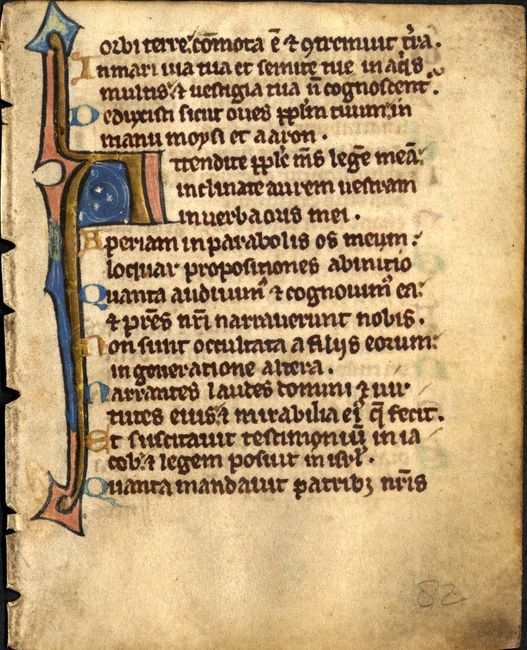 orbi terre. cōmota ē & ꝯtremuit t̄ra.
In mari uia tua et semite tue in aq̄s
multis. & uestigia tua ñ cognoscent᷑.
Deduxisti sicut oues ppl̄m tuum. in
manu moysi et aaron.
Attendite pple m̄s legē meā.
inclinate aurem uestram
in uerba oris mei.
Aperiam in parabolis os meum.
loquar propositiones ab initio
Quanta audiuim᷒ & cognouim᷒ ea.
& pr̄es nr̄i narrauerunt nobis.
Non sunt occultata a filijs eorum.
in generatione altera.
Narrantes laudes domini & uir
tutes eius. & mirabilia ei᷒ q̄ fecit.
Et suscitauit testimoniū in ia
cob. & legem posuit in isrl̄.
Quanta mandauit patribꝫ nr̄is
82